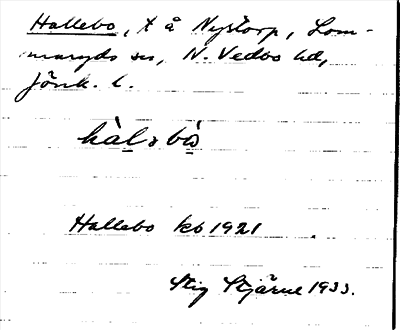 Hallebo, t å Nystorp, Lom-
maryds sn, N. Vedbo hd,
Jönk. l.
hàl̲ɜbò̲
Hallebo kb 1921
Stig Stjärne 1933.